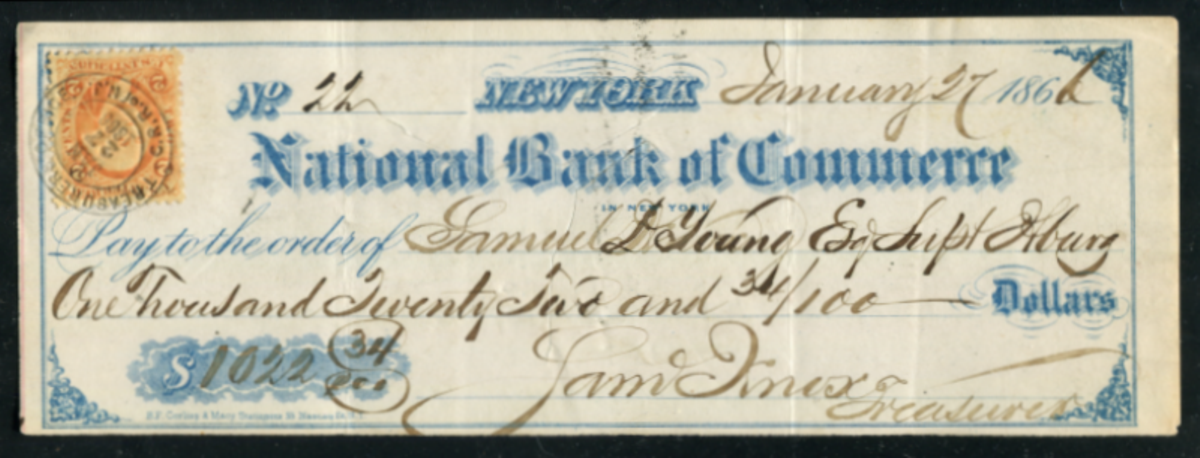 No 22 NEW YORK January 27 1866
National Bank of Commerce
IN NEW YORK
Pay to the order of Samuel D Young Esq Supt
One Thousand Twenty Two and 34/100 Dollars
$ 1022 34/100
Sam Knox
Treasurer
TREASURER C.R.R. of N.J.